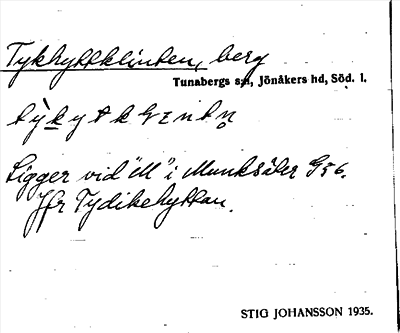 Tykhyttklinten, berg
Tunabergs sn, Jönåkers hd, Söd. l.
Ligger vid "M" i Munksäter G56.
Jfr Tydikehyttan.
STIG JOHANSSON 1935.